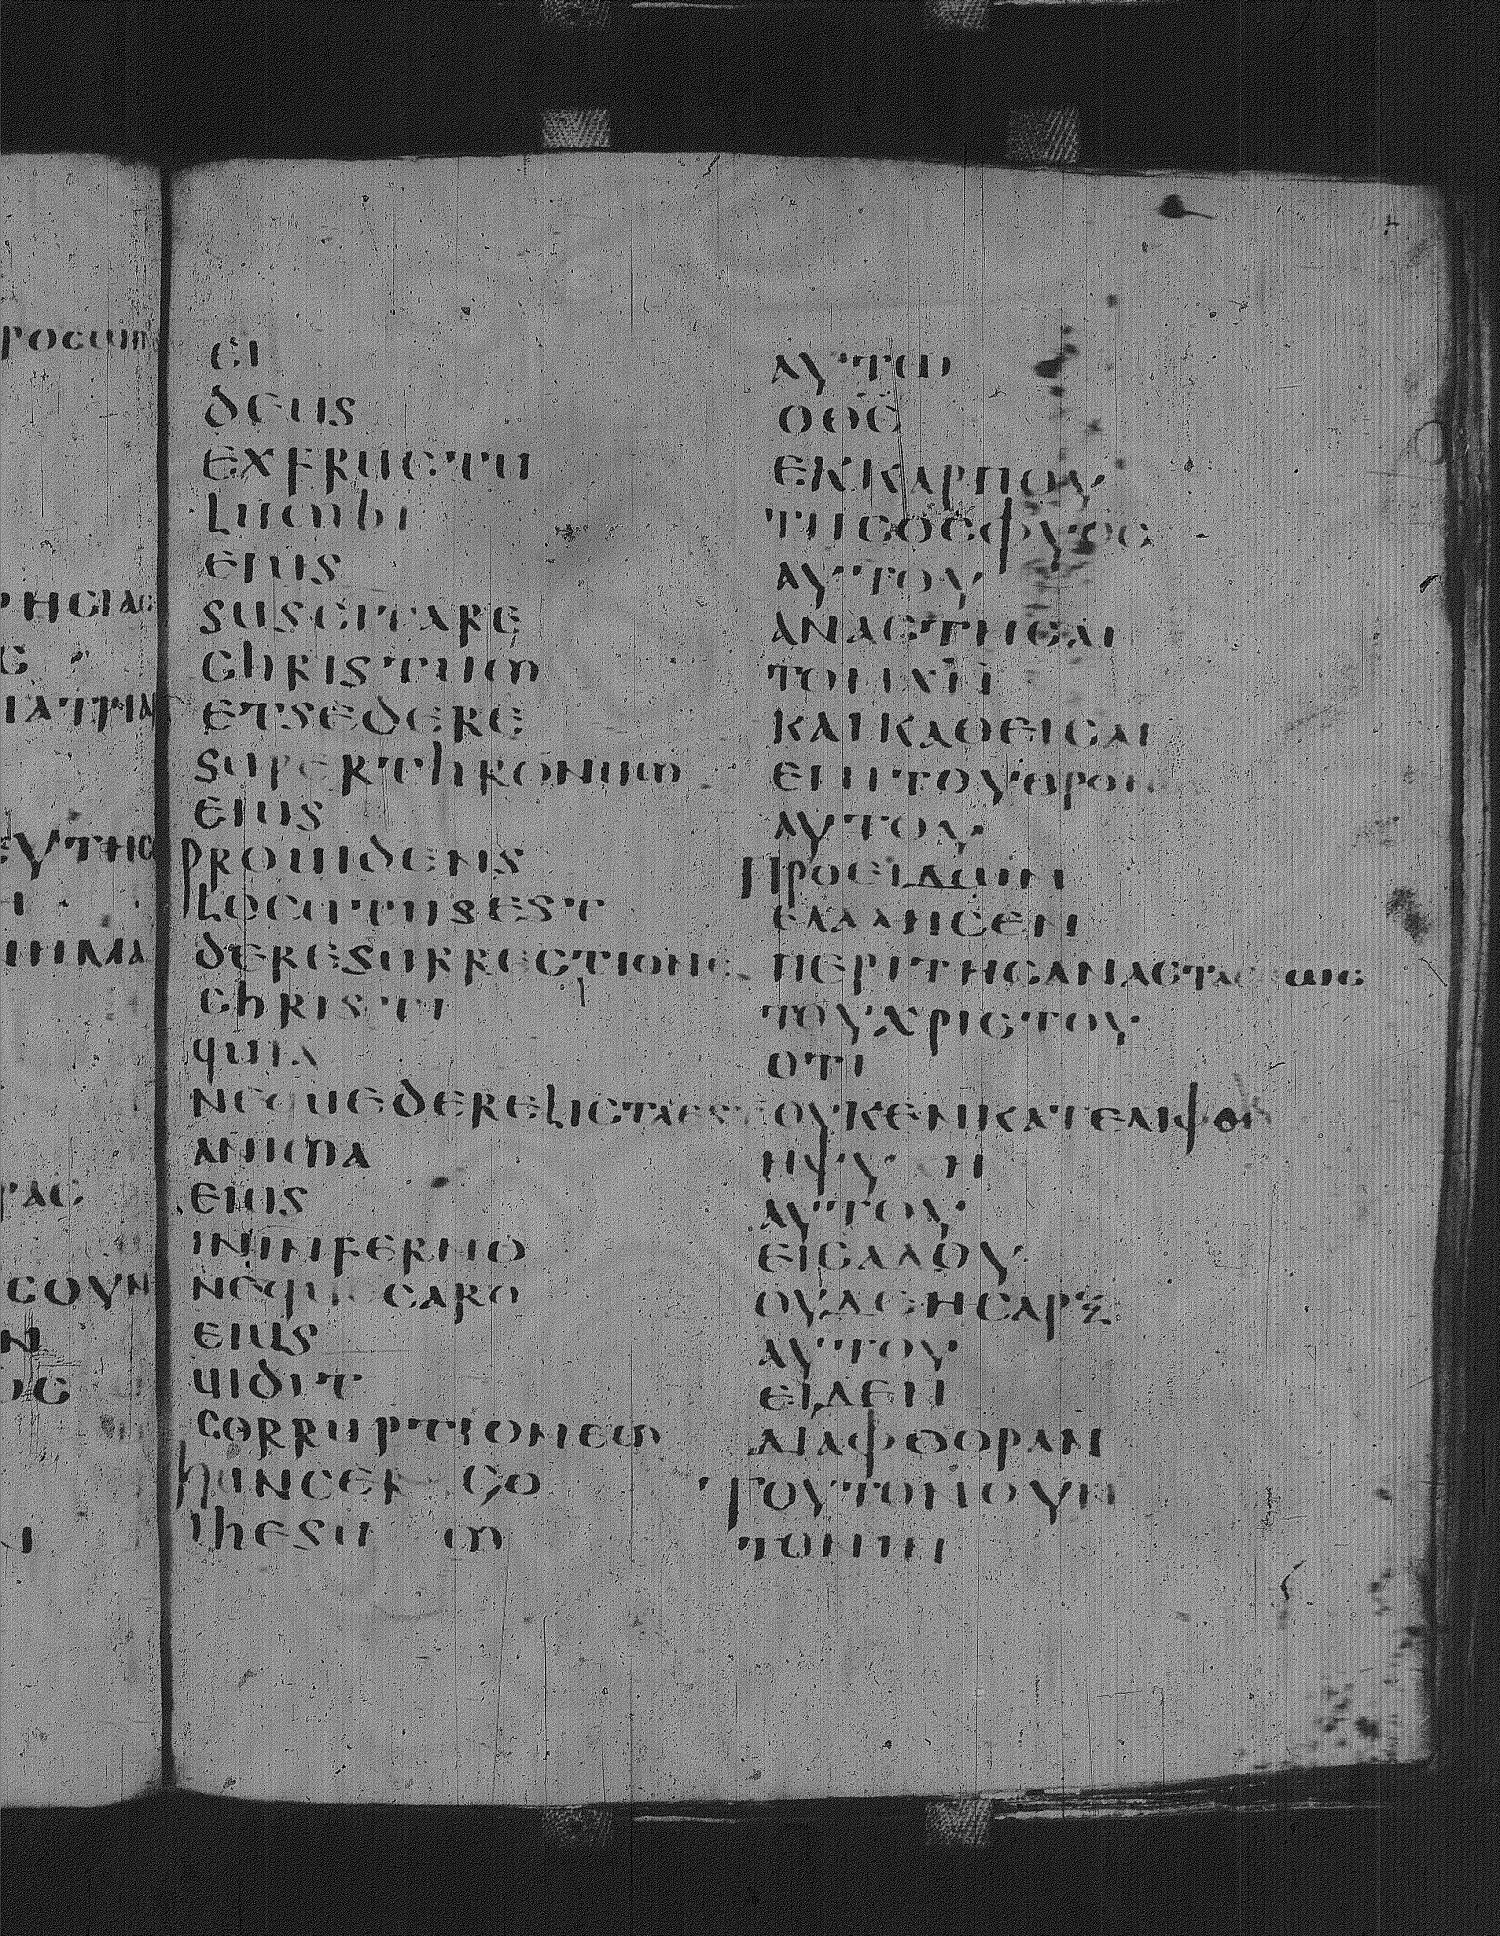 ροσωπ
ρησιας
ς
ιατρια
ευτης
ι
μνημα
τας
σουν
ν
ος
ει
deus
exfructu
lumbi
eius
suscitare
christum
etsedere
superthronum
eius
prouidens
locutusest
deresurrectione
christi
quia
nequederelictaest
anima
eius
ininferno
neque caro
eius
uidit
corruptionem
huncer go
ihesu m
αυτω
οθς
εκκαρπου
τησοσφυος
αυτου
αναστησαι
τονχν
καικαθεισαι
επιτουθρον
αυτου
προειδων
ελαλησεν
περιτησαναστασεως
τουχριστου
οτι
ουκενκατελιφθη
ηψυχη
αυτου
εισαδου
ουδεησαρξ
αυτου
ειδεν
διαφθοραν
τουτονουν
τονιην